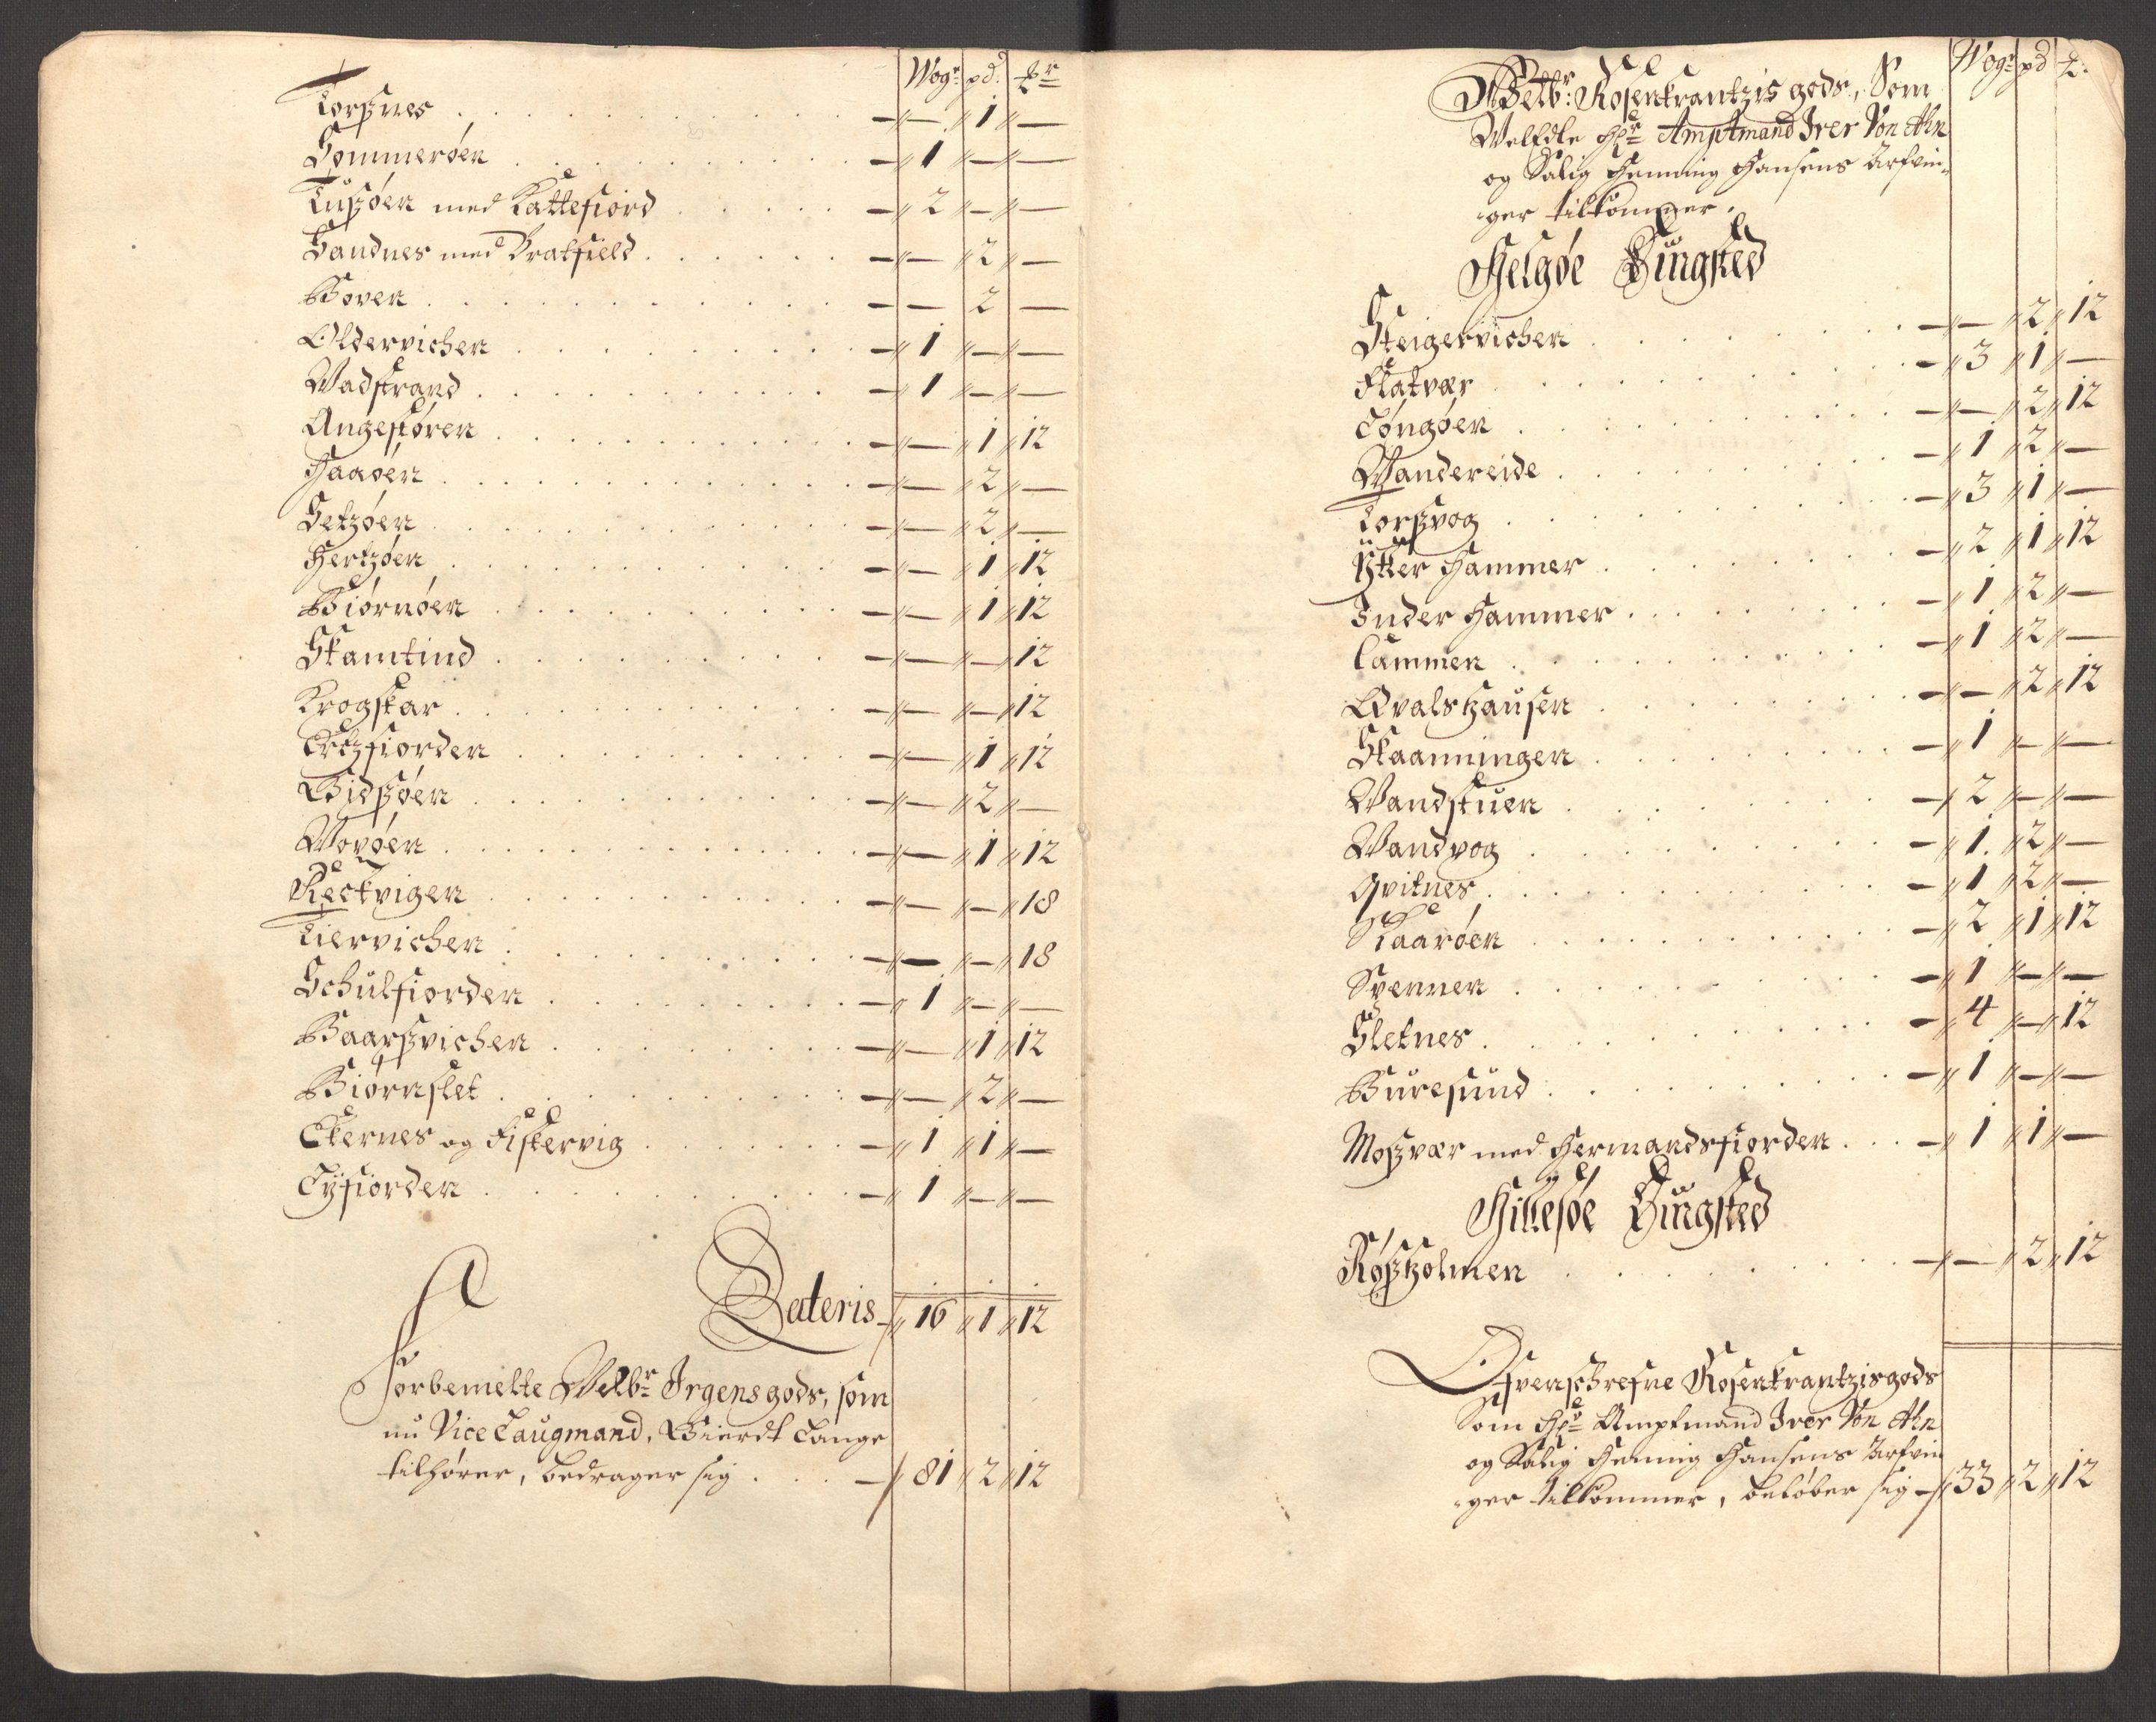 Wogr pd. ℔r
Torsznes . — — 1 —
Sommerøen . — 1 — —
Tuszøen med Kattefiord . — 2 — —
Sandnes med Kratfield . — — 2 —
Boven . — — 2 —
Oldervichen . — 1 — —
Wadstrand . — 1 — —
Angestøren . — — 1 12
Haaøen . — — 2 —
Setzøen . — — 2 —
Hertzøen . — — 1 12
Biørnøen . — — 1 12
Skamtind . — — — 12
Krogskar . — — — 12
Ertzfiorden . — — 1 12
Gidszøen . — — 2 —
Wovøen . — — 1 12
Reckvigen . — — — 18
Tiervichen . — — — 18
Schulfiorden . — 1 — —
Baarszvichen . — — 1 12
Biørnslet . — — 2 —
Ekernes og Fiskervig . — 1 1 —
Lyfiorden . — 1 — —
Lateris — 16 1 12
Forbemelte Welbr Irgens gods, som
nu Vice Laugmand, Gierdt Lange
tilhører, bedrager sig . — 81 2 12
Wogr pd ℔.
Welbr: Rosenkrantzis gods, Som
WelEdle Hr Amptmand Iver Von Ahn
og Salig Henning Hansens Arfvin-
ger tilkommer.
Helgøe Tingsted
Steigervichen . — — 2 12
Flatvær . — 3 1 —
Løngøen . — — 2 12
Wandereide . — 1 2 —
Torszvog . — 3 1 —
Ytter Hammer . — 2 1 12
Inder Hammer . — 1 2 —
Lammen . — 1 2 —
Qvalshausen . — — 2 12
Skaanningen . — 1 — —
Wandstuen . — 2 — —
Wandvog . — 1 2 —
Qvitnes . — 1 2 —
Kaarøen . — 2 1 12
Spennen . — 1 — —
Sletnes . — 4 — 12
Buresund . — 1 — —
Moszvær med Hermandsfiorden . — 1 1 —
Hillesøe Tingsted
Røszholmen . — — 2 12
Ofvenschrefne Rosenkrantzis gods
Som Hr Amptmand Iver Von Ahn
og Salig Henning Hansens Arfvin
ger tilkommer, beløber sig — 33 2 12